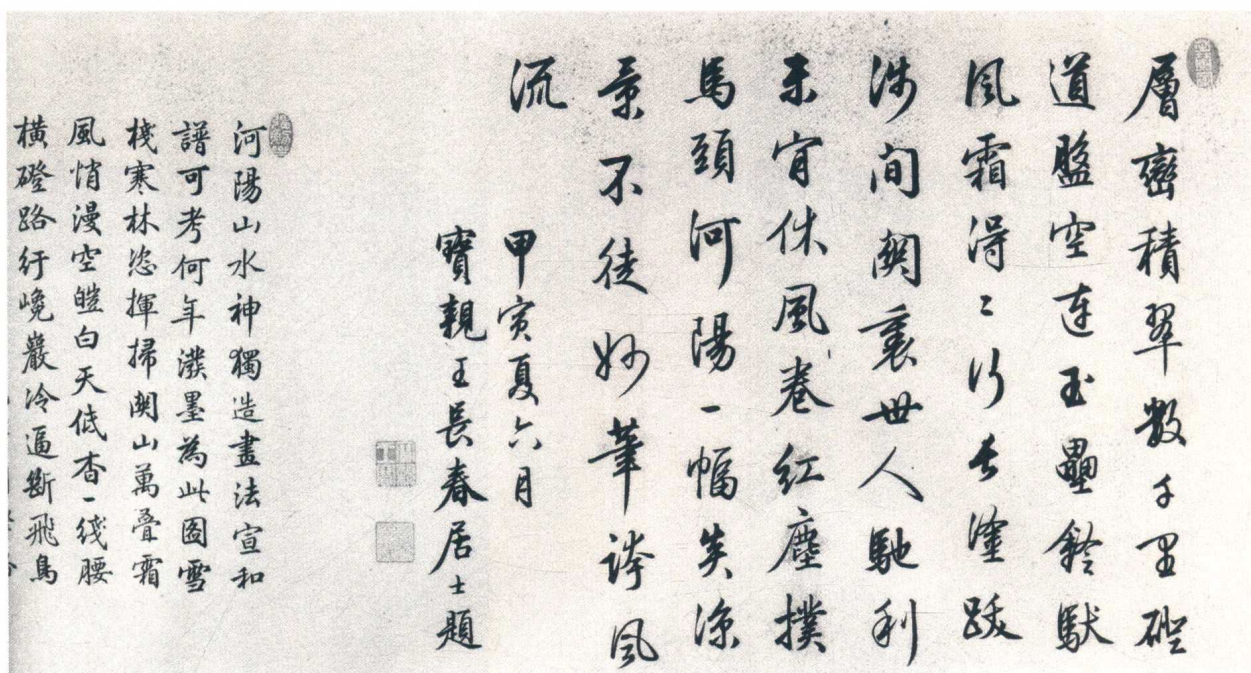 層巒積翠數千里磴
道盤空連玉壘鈴馱
風霜得〻行長塗跋
涉間關裏世人馳利
未肯休風卷紅塵撲
馬頭河陽一幅炎涼
景不徒妙筆誇風
流
甲寅夏六月
寶親王長春居士題
河陽山水神獨造畫法宣和
譜可考何年濮墨為此圖雪
棧寒林恣揮掃關山萬疊霜
風悄漫空皚白天低杳一綫腰
橫磴路紆巉巖冷逼斷飛鳥